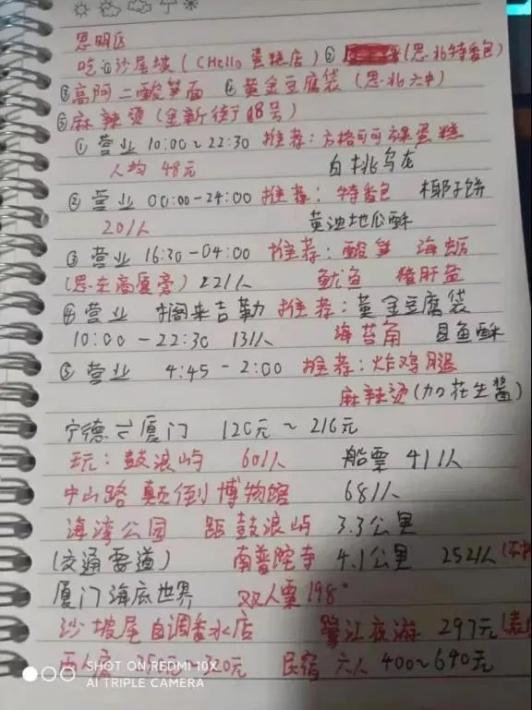 思明区
吃①沙尾坡(CHello 蛋糕店)② (思北特香包)
③高阿二酸笋面 ④黄金豆腐袋(思北六中)
⑤麻辣烫(金新街98号)
①营业 10:00~22:30 推荐:方格可可 蛋糕
人均 48元 白桃乌龙
②营业 00:00-24:00 推荐:特香包 椰子饼
20/人 黄油地瓜酥
③营业 16:30-04:00 推荐:酸笋 海蛎
22/人 鱿鱼 猪肝
④营业 推荐:黄金豆腐袋
10:00-22:30 13/人 海苔角 目鱼酥
⑤营业 4:45-2:00 推荐:炸鸡腿
麻辣烫(加花生酱)
宁德⇌厦门 120元~216元
玩:鼓浪屿 60/人 船票 41/人
中山路 颠倒博物馆 68/人
海湾公园 距鼓浪屿 3.3公里
(交通要道) 南普陀寺 4.1公里 252/人
厦门海底世界 双人票198
沙坡尾自调香水店 鹭江夜游 297元
民宿 六人 400~640元
SHOT ON REDMI 10X
AI TRIPLE CAMERA